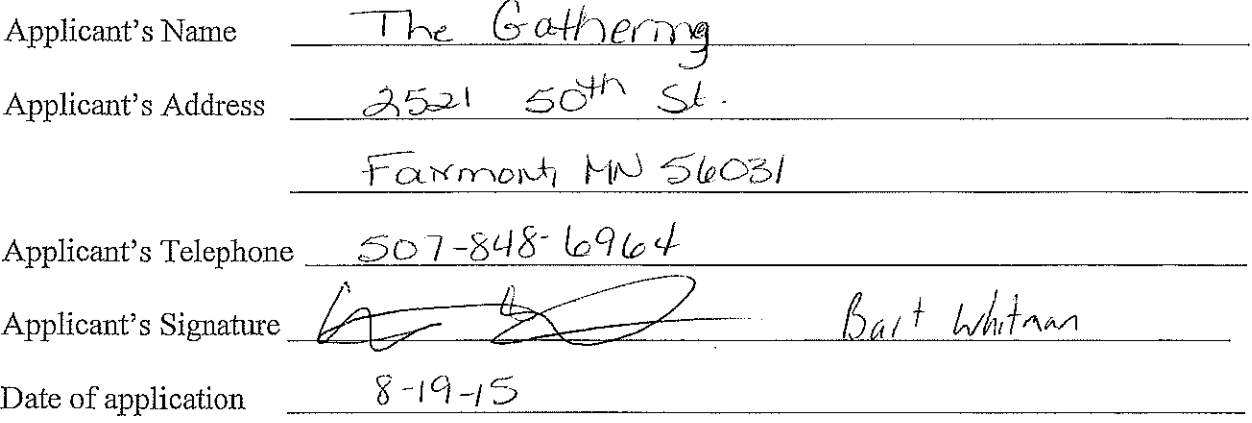 Applicant's Name The Gathering
Applicant's Address 2521 50th St.
Fairmont, MN 56031
Applicant's Telephone 507-848-6964
Applicant's Signature Bart Whitman
Date of application 8-19-15